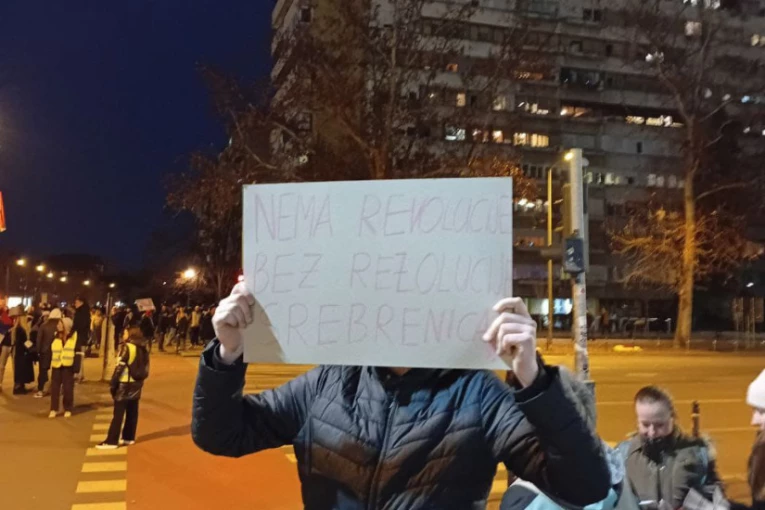 NEMA REVOLUCIJE
BEZ REZOLUCIJE
SREBRENICA